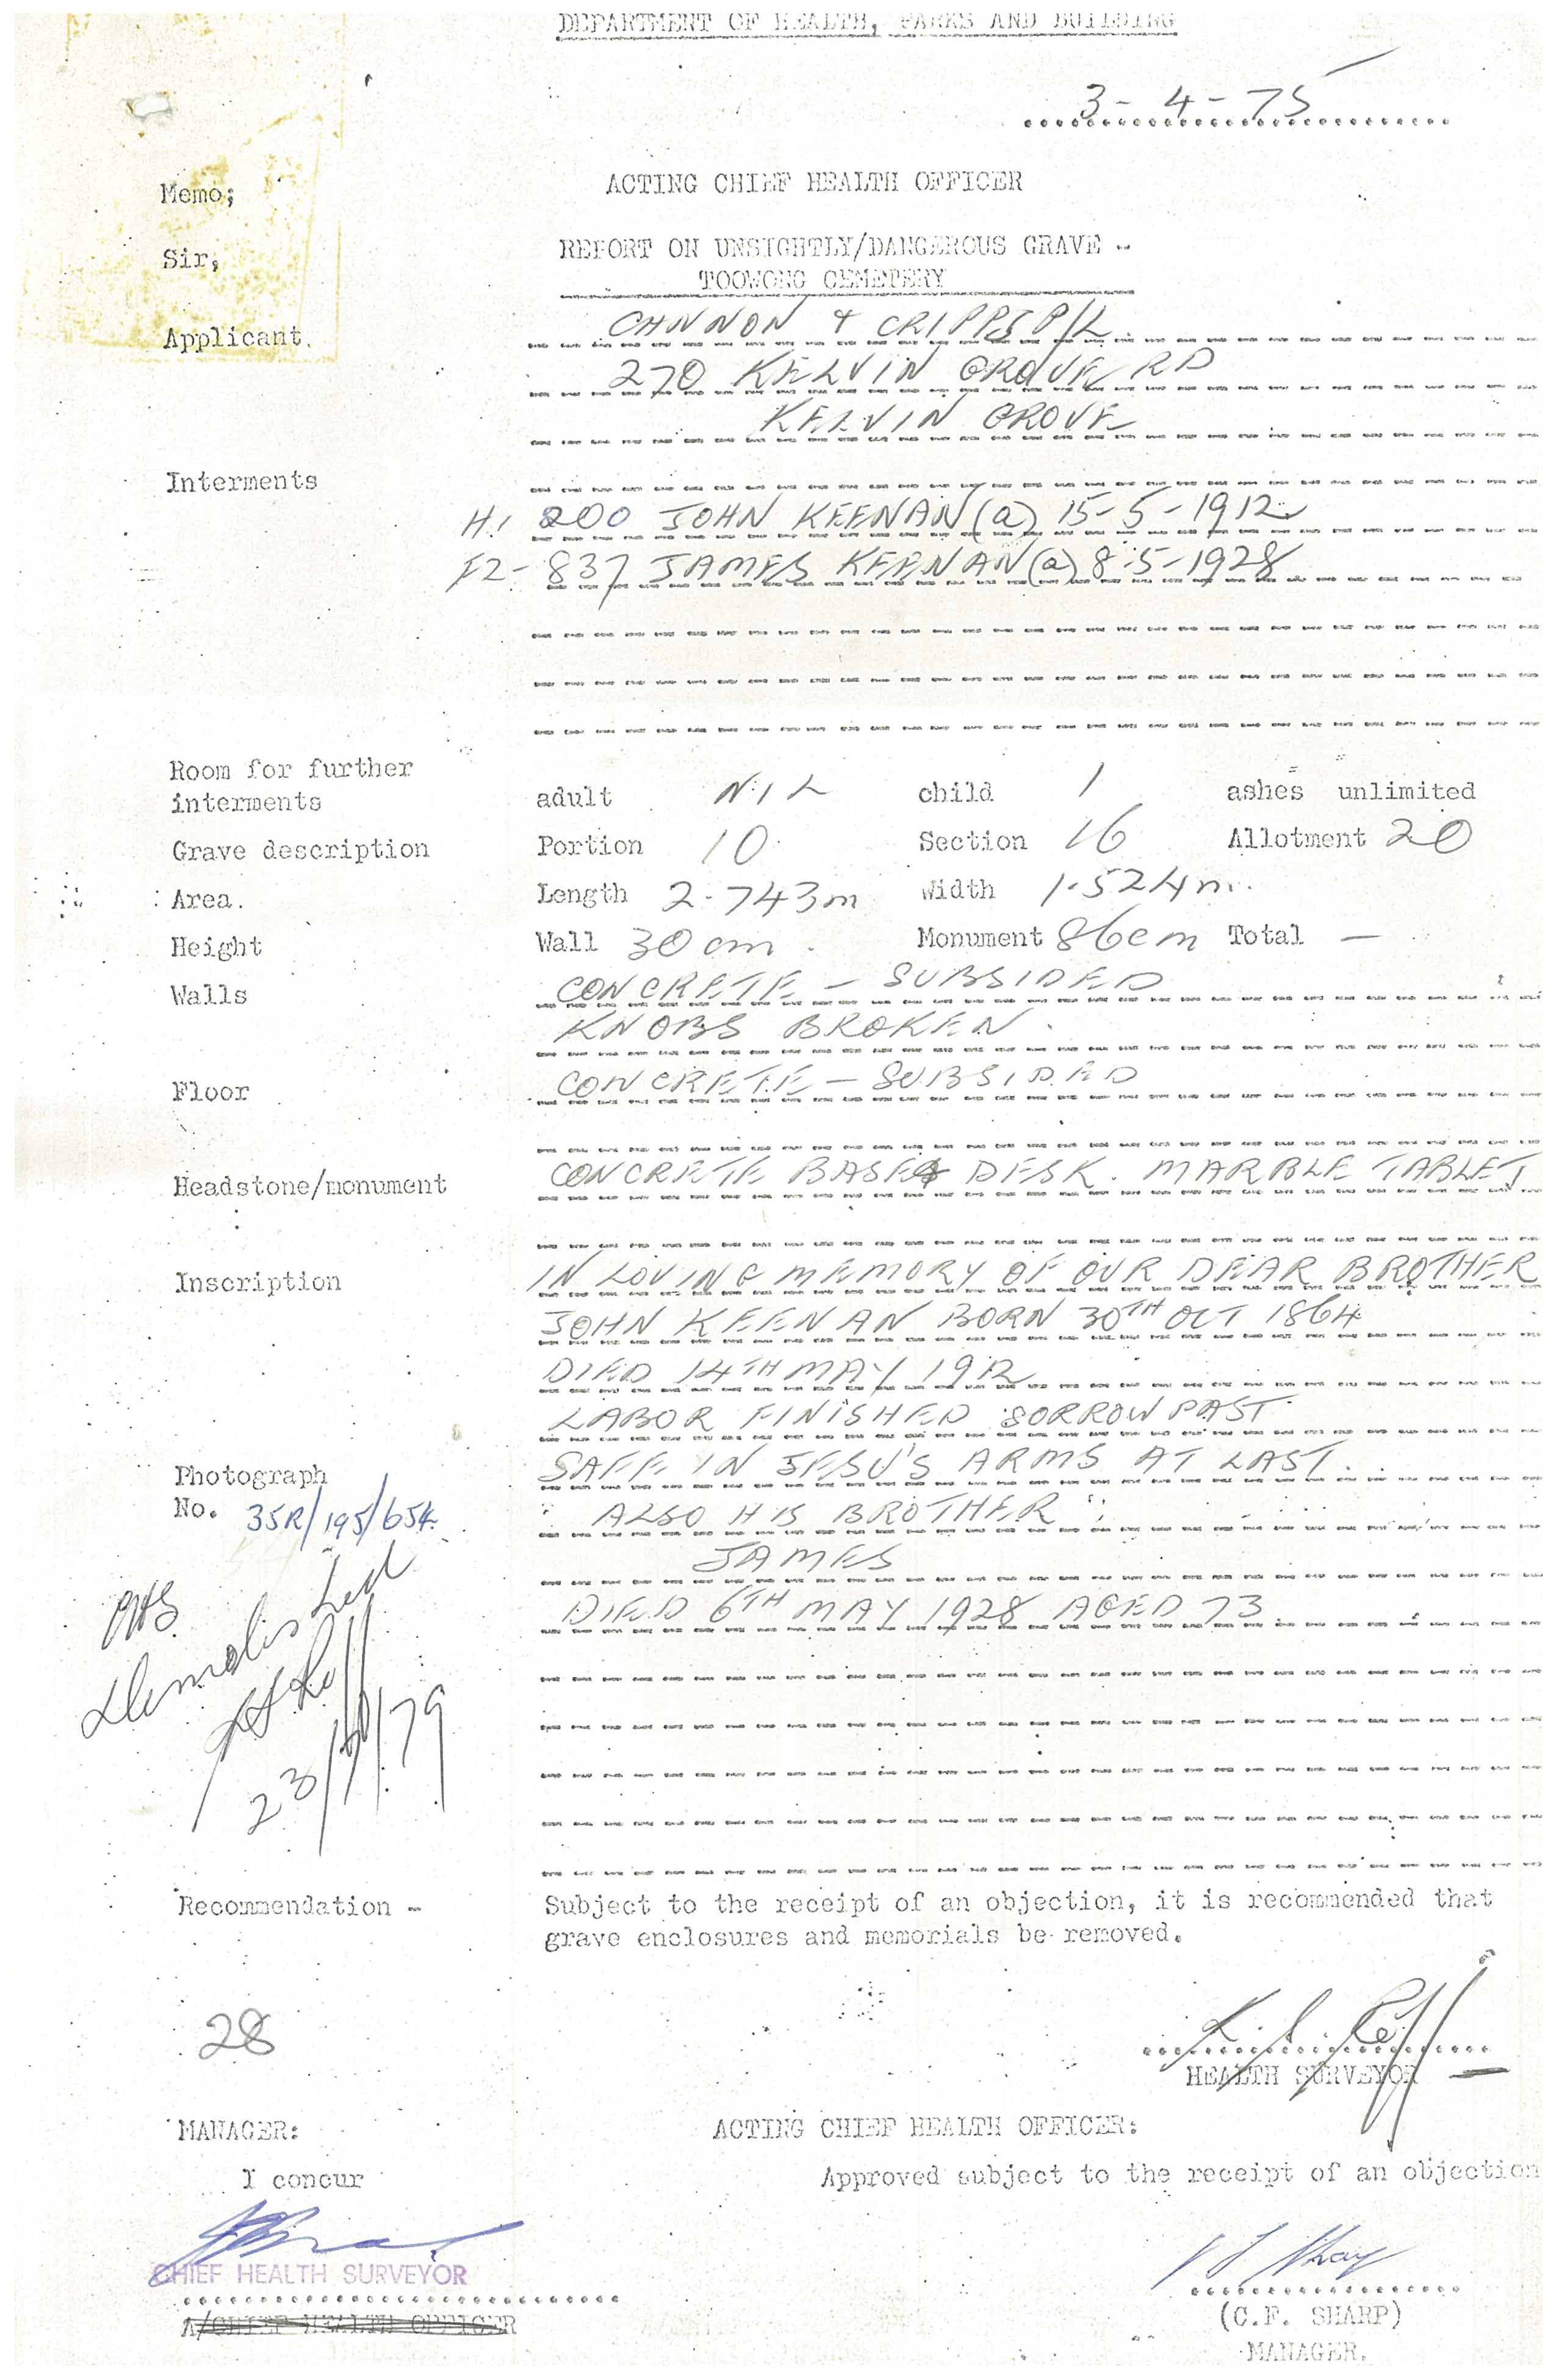 DEPARTMENT OF HEALTH, PARKS AND BUILDING
3-4-75
Memo; ACTING CHIEF HEALTH OFFICER
Sir, REPORT ON UNSIGHTLY/DANGEROUS GRAVE -
TOOWONG CEMETERY
Applicant. CANNON & CRIPPS P/L.
270 KELVIN GROVE RD
KELVIN GROVE
Interments
H.1 200 JOHN KEENAN (a) 15-5-1912
F2-837 JAMES KEENAN (a) 8-5-1928
Room for further
interments adult NIL child 1 ashes unlimited
Grave description Portion 10 Section 16 Allotment 20
Area. Length 2.743m Width 1.524m.
Height Wall 30 cm. Monument 86cm Total —
Walls CONCRETE - SUBSIDED
KNOBS BROKEN.
Floor CONCRETE - SUBSIDED
Headstone/monument CONCRETE BASE & DESK. MARBLE TABLET
Inscription IN LOVING MEMORY OF OUR DEAR BROTHER
JOHN KEENAN BORN 30TH OCT 1864
DIED 14TH MAY 1912
LABOR FINISHED SORROW PAST
SAFE IN JESU'S ARMS AT LAST.
Photograph
No. 35R/195/654.
ALSO HIS BROTHER
JAMES
DIED 6TH MAY 1928 AGED 73
Demolished
Recommendation - Subject to the receipt of an objection, it is recommended that
grave enclosures and memorials be removed.
28
HEALTH SURVEYOR
MANAGER: ACTING CHIEF HEALTH OFFICER:
I concur Approved subject to the receipt of an objection
CHIEF HEALTH SURVEYOR
A/CHIEF HEALTH OFFICER
(C.F. SHARP)
MANAGER.